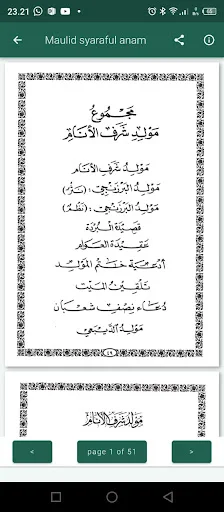 23.21
Maulid syaraful anam
مَجْمُوعُ
مَوْلِدِ شَرَفِ الْأَنَامِ
مَوْلِدُ شَرَفِ الْأَنَامِ
مَوْلِدُ الْبَرْزَنْجِي : (نَثَرْ)
مَوْلِدُ الْبَرْزَنْجِي : (نَظَمْ)
قَصِيْدَةُ الْبُرْدَةِ
عَقِيْدَةُ الْعَوَامِ
أَدْعِيَةُ خَتْمِ الْمَوْلِدِ
تَلْقِيْنُ الْمَيِّتِ
دُعَاءُ نِصْفِ شَعْبَانَ
مَوْلِدُ الدَّيْبَعِي
مَوْلِدُ شَرَفِ الْأَنَامِ
<
page 1 of 51
>